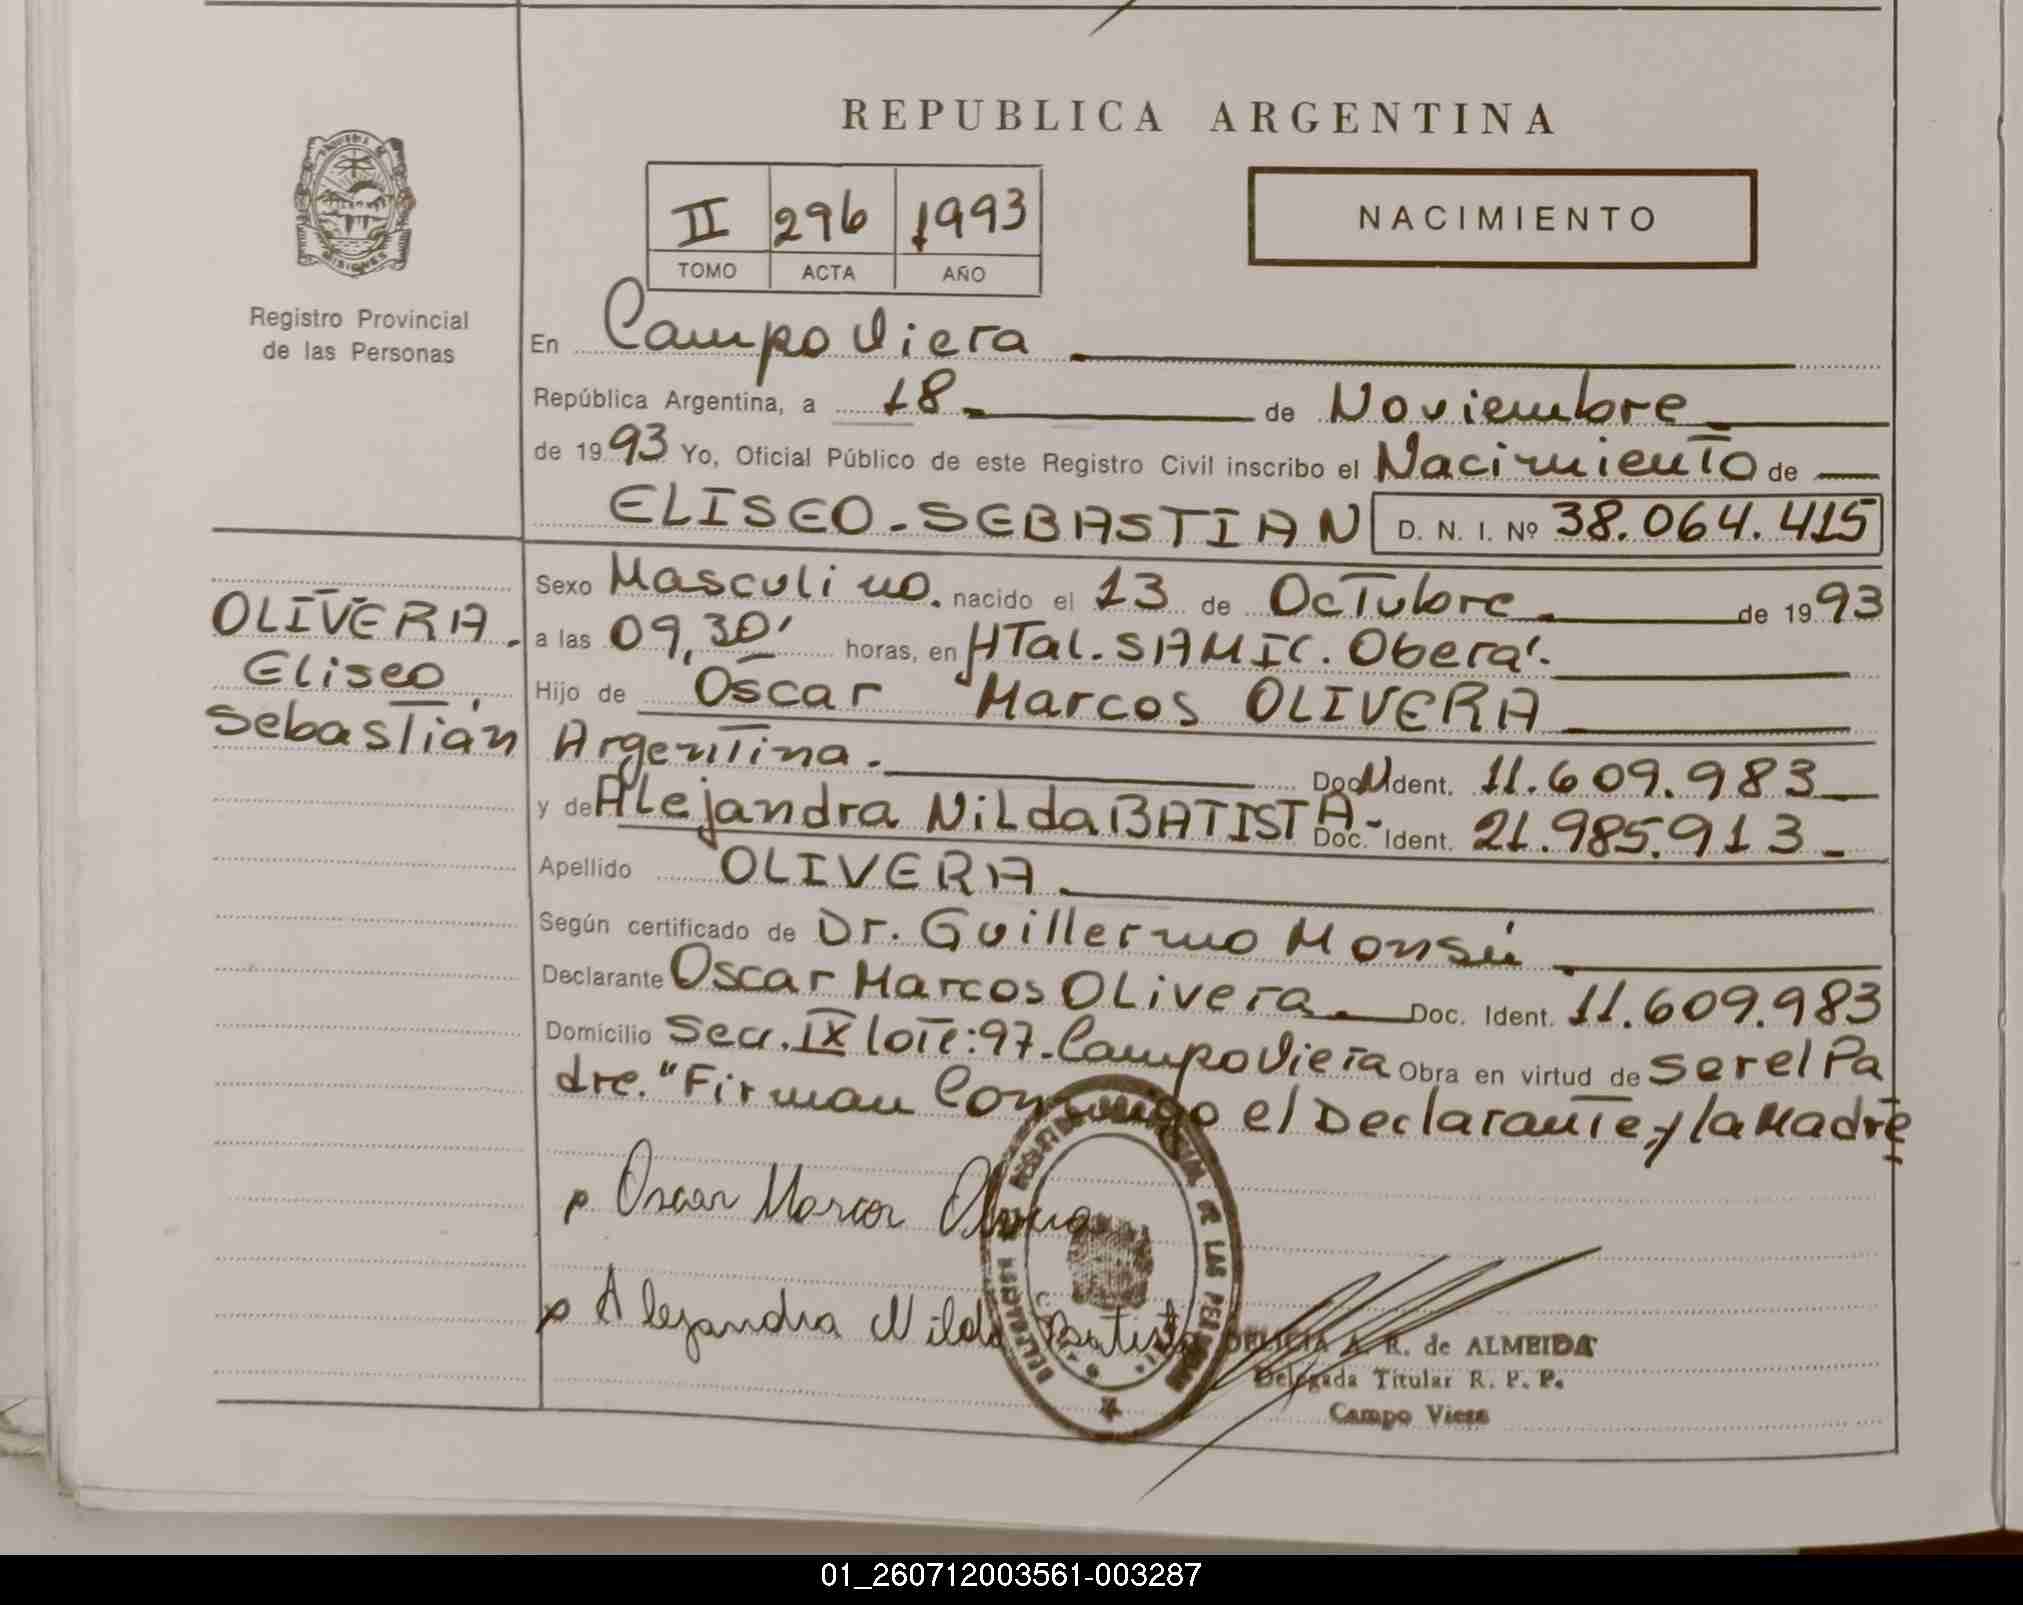 REPUBLICA ARGENTINA
II 296 1993
TOMO ACTA AÑO
NACIMIENTO
MISIONES
Registro Provincial
de las Personas
En Campo Viera
República Argentina, a 18 de Noviembre
de 1993 Yo, Oficial Público de este Registro Civil inscribo el Nacimiento de
ELISEO-SEBASTIAN D. N. I. Nº 38.064.415
OLIVERA.
Eliseo
Sebastián
Sexo Masculino. nacido el 13 de Octubre de 1993
a las 09,30' horas, en HTal. SAMIC. Oberá.
Hijo de Oscar Marcos OLIVERA
Argentina. Doc. Ident. 11.609.983
y de Alejandra Nilda BATISTA- Doc. Ident. 21.985.913
Apellido OLIVERA
Según certificado de Dr. Guillermo Monsú
Declarante Oscar Marcos OLivera Doc. Ident. 11.609.983
Domicilio Secc. IX lote: 97-Campo Viera Obra en virtud de ser el Pa
dre. "Firman Conmigo el Declarante y la Madre
p. Oscar Marcos Olivera
p Alejandra Nilda Batista
DELICIA A. R. de ALMEIDA
Delegada Titular R. P. P.
Campo Viera
DE LAS PERSONAS
01_260712003561-003287